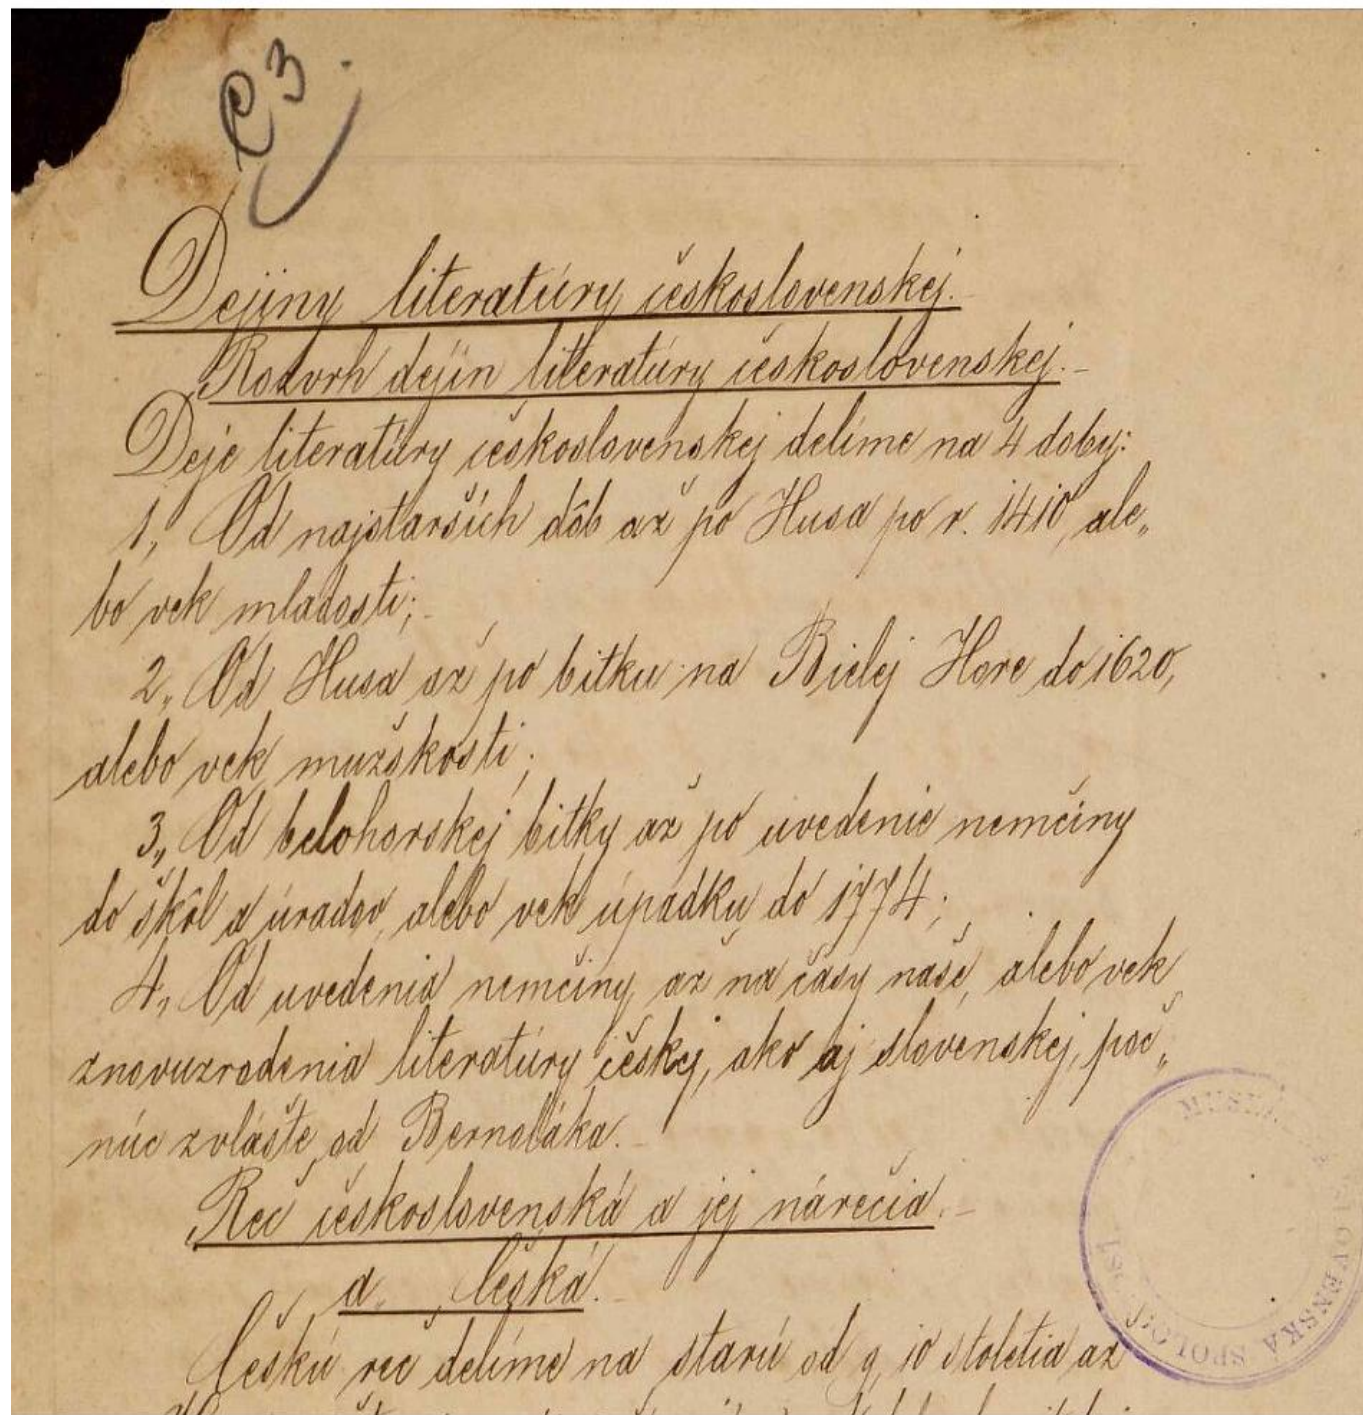 C3.
Dejiny literatúry československej.
Rozvrh dejín literatúry československej.-
Deje literatúry československej delíme na 4 doby:
1, Od najstarších dôb až po Husa po r. 1410, ale„
bo vek mladosti;-
2„ Od Husa až po bitku na Bielej Hore do 1620,
alebo vek mužskosti;
3„ Od belohorskej bitky až po uvedenie nemčiny
do škôl a úradov, alebo vek úpadku do 1774;
4, Od uvedenia nemčiny až na časy naše, alebo vek
znovuzrodenia literatúry českej, ako aj slovenskej, poč„
núc zvlášte od Bernoláka.-
Reč československá a jej nárečia.-
a, Česká.-
Českú reč delíme na starú od 9, 10 stoletia až
SLOVENSKÁ SPOLOČ